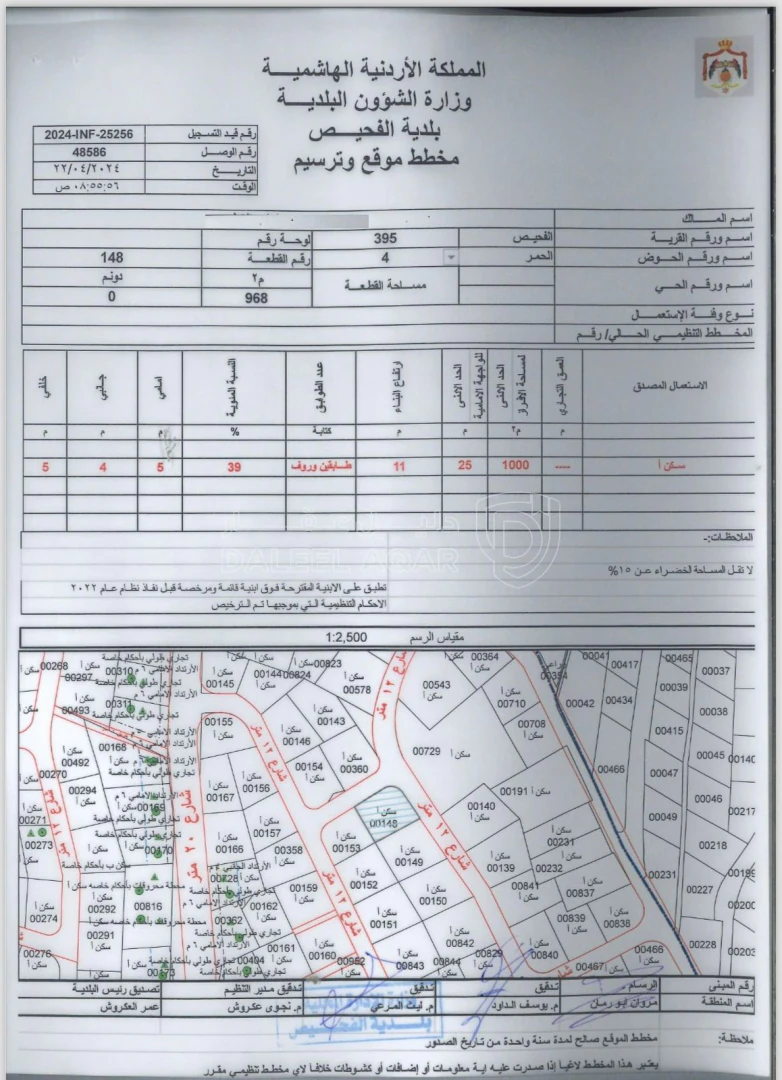 المملكة الأردنية الهاشمية
وزارة الشؤون البلدية
بلدية الفحيص
مخطط موقع وترسيم
رقم قيد التسجيل 2024-INF-25256
رقم الوصل 48586
التاريخ ٢٢/٠٤/٢٠٢٤
الوقت ٠٨:٥٥:٥٦ ص
اسم المالك
اسم ورقم القرية الفحيص 395 لوحة رقم
اسم ورقم الحوض الحمر 4 رقم القطعة 148
اسم ورقم الحي مساحة القطعة م٢ دونم
968 0
نوع وفئة الإستعمال
المخطط التنظيمي الحالي/ رقم
الاستعمال المصدق العمق التجاري الحد الادنى لمساحة الافراز الحد الادنى للواجهة الامامية ارتفاع البناء عدد الطوابق النسبة المئوية امامي جانبي خلفي
م م٢ م م كتابة % م م م
سكن أ ---- 1000 25 11 طابقين وروف 39 5 4 5
دليل عقار
DALEEL AQAR
الملاحظات:-
لا تقل المساحة الخضراء عن ١٥%
تطبق على الابنية المقترحة فوق ابنية قائمة ومرخصة قبل نفاذ نظام عام ٢٠٢٢
الاحكام التنظيمية التي بموجبها تم الترخيص
مقياس الرسم 1:2,500
00268 سكن أ
00297
00310
تجاري طولي بأحكام خاصة
الارتداد الامامي ٦ م
00145 سكن أ
00144
00824
00823
00578 سكن أ
شارع ١٢ متر
00364
00543 سكن أ
00710 سكن أ
00708 سكن أ
00354
00041
00417
00465
00037
00042
00434
00039
00038
00415
00493
00311
00155 سكن أ
00143 سكن أ
00146 سكن أ
00154 سكن أ
00360 سكن أ
00729 سكن أ
00466
00047
00045
00140
00492
00168
00270
00294
00169
00167
00156
شارع ١٢ متر
00191 سكن أ
00140 سكن أ
00148 سكن أ
00046
00217
00049
00271
00273
شارع ٢٠ متر
00170
00166
00157
00358
00153
00149
شارع ١٢ متر
00139
00231
00232
00218
00231
00292
00816
00728
00159
00152
00150
00841
00837
00227
00200
محطة محروقات بأحكام خاصة
00274
00291
00362
00162
00151
00839
00838
00276
00161
00160
00962
00843
00842
00844
00829
00840
00467
00466
00228
00203
00173
00494
شارع ١٢ متر
رقم المبنى الرسام تدقيق تدقيق تدقيق مدير التنظيم تصديق رئيس البلدية
اسم المنطقة مروان ابو رمان م. يوسف الداود م. ليث المرعي م. نجوى عكروش عمر العكروش
بلدية الفحيص
ملاحظة: مخطط الموقع صالح لمدة سنة واحدة من تاريخ الصدور
يعتبر هذا المخطط لاغيا إذا صدرت عليه اية معلومات أو إضافات أو كشوطات خلافا لاي مخطط تنظيمي مقرر